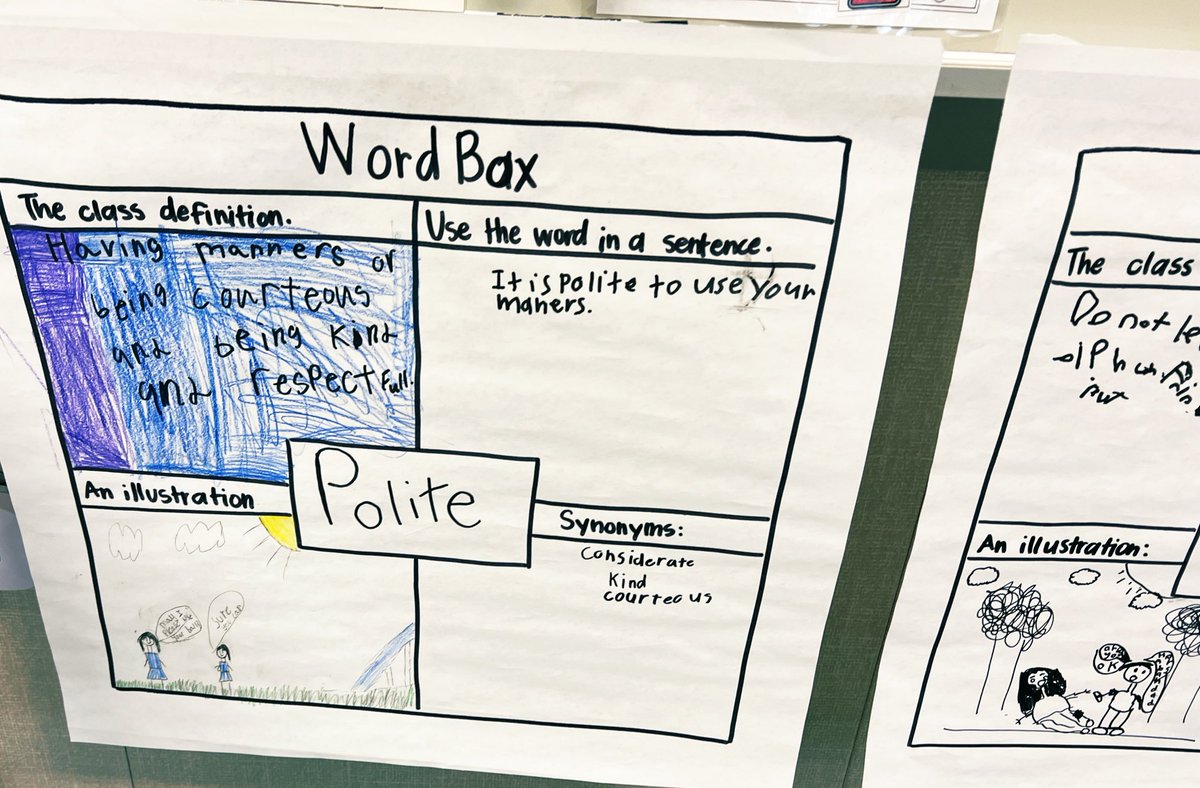 Word Bax
The class definition.
Having manners or
being courteous
and being kind
and respectfull.
Use the word in a sentence.
It is polite to use your
maners.
Polite
An illustration
May I
please
your
sure
Synonyms:
Considerate
Kind
courteous
The class
Do not
put
An illustration:
are
you
OK